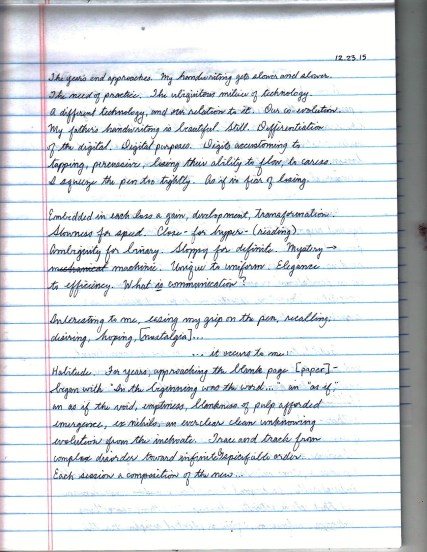 12.23.15
The year's end approaches. My handwriting gets slower and slower.
The need of practice. The ubiquitous milieu of technology.
A different technology, and our relation to it. Our co-evolution.
My father's handwriting is beautiful. Still. Differentiation
of the digital. Digital purposes. Digits accustoming to
tapping, percussive, losing their ability to flow, to caress.
I squeeze the pen too tightly. As if in fear of losing
Embedded in each loss a gain, development, transformation.
Slowness for speed. Close - for hyper - (reading)
Ambiguity for binary. Sloppy for definite. Mystery →
mechanical machine. Unique to uniform. Elegance
to efficiency. What is communication?
Interesting to me, easing my grip on the pen, recalling,
desiring, hoping, [nostalgia]...
... it occurs to me:
Habitude. For years, approaching the blank page [paper] -
began with "In the beginning was the word..." an "as if,"
an as if the void, emptiness, blankness of pulp afforded
emergence, ex nihilo, an everclear clean unknowing
evolution from the inchoate. Trace and track from
complex disorder toward infinite specifiable order.
Each session a composition of the new...